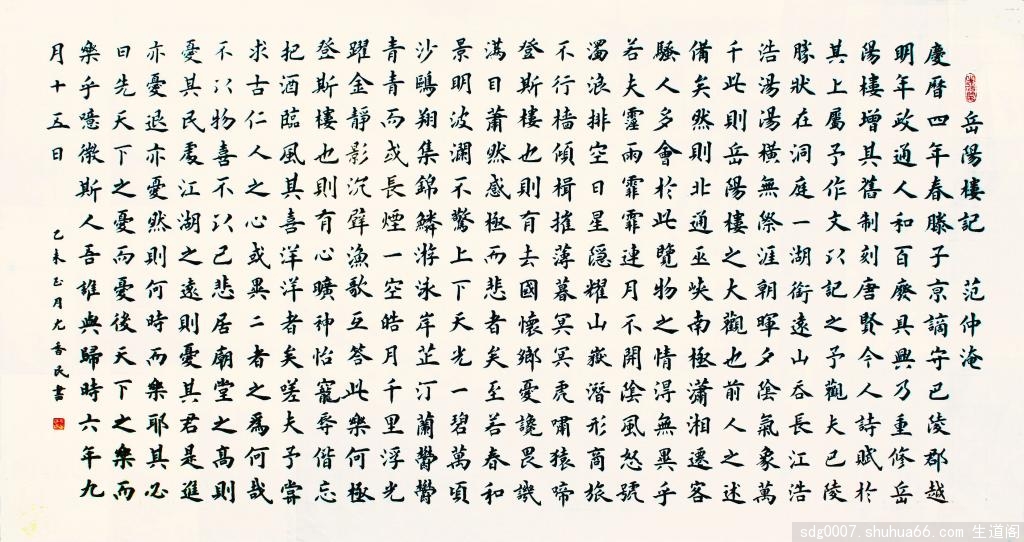 岳陽樓記 范仲淹
慶曆四年春滕子京謫守巴陵郡越
明年政通人和百廢具興乃重修岳
陽樓增其舊制刻唐賢今人詩賦於
其上屬予作文以記之予觀夫巴陵
勝狀在洞庭一湖銜遠山吞長江浩
浩湯湯橫無際涯朝暉夕陰氣象萬
千此則岳陽樓之大觀也前人之述
備矣然則北通巫峽南極瀟湘遷客
騷人多會於此覽物之情得無異乎
若夫霪雨霏霏連月不開陰風怒號
濁浪排空日星隱耀山嶽潛形商旅
不行檣傾楫摧薄暮冥冥虎嘯猿啼
登斯樓也則有去國懷鄉憂讒畏譏
滿目蕭然感極而悲者矣至若春和
景明波瀾不驚上下天光一碧萬頃
沙鷗翔集錦鱗游泳岸芷汀蘭鬱鬱
青青而或長煙一空皓月千里浮光
躍金靜影沉璧漁歌互答此樂何極
登斯樓也則有心曠神怡寵辱偕忘
把酒臨風其喜洋洋者矣嗟夫予嘗
求古仁人之心或異二者之為何哉
不以物喜不以己悲居廟堂之高則
憂其民處江湖之遠則憂其君是進
亦憂退亦憂然則何時而樂耶其必
曰先天下之憂而憂後天下之樂而
樂乎噫微斯人吾誰與歸時六年九
月十五日
乙未正月尤香民書
sdg0007.shuhua66.com 生道阁